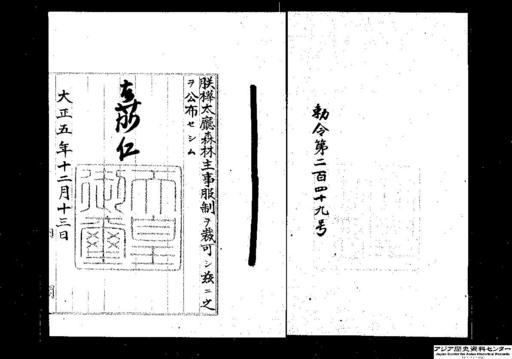 勅令第二百四十九号
朕樺太廳森林主事服制ヲ裁可シ茲ニ之
ヲ公布セシム
嘉仁
天皇
御璽
大正五年十二月十三日
アジア歴史資料センター
Japan Center for Asian Historical Records